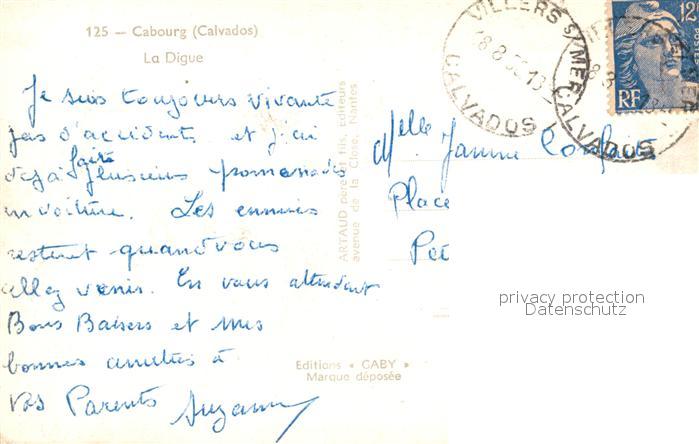 125 — Cabourg (Calvados)
La Digue
Je suis toujours vivante
pas d'accidents et j'ai
déjà faire plusieurs promenades
en voiture. Les ennuis
restent quand vous
allez venir. En vous attendant
Bons Baisers et mes
bonnes amitiés à
vos Parents Suzanne
ARTAUD père et fils, Editeurs
avenue de la Close, Nantes
Editions « GABY »
Marque déposée
VILLERS S/MER
18-8
CALVADOS
VILLERS S/MER
CALVADOS
12F
RF
Melle Janine
Place
privacy protection
Datenschutz